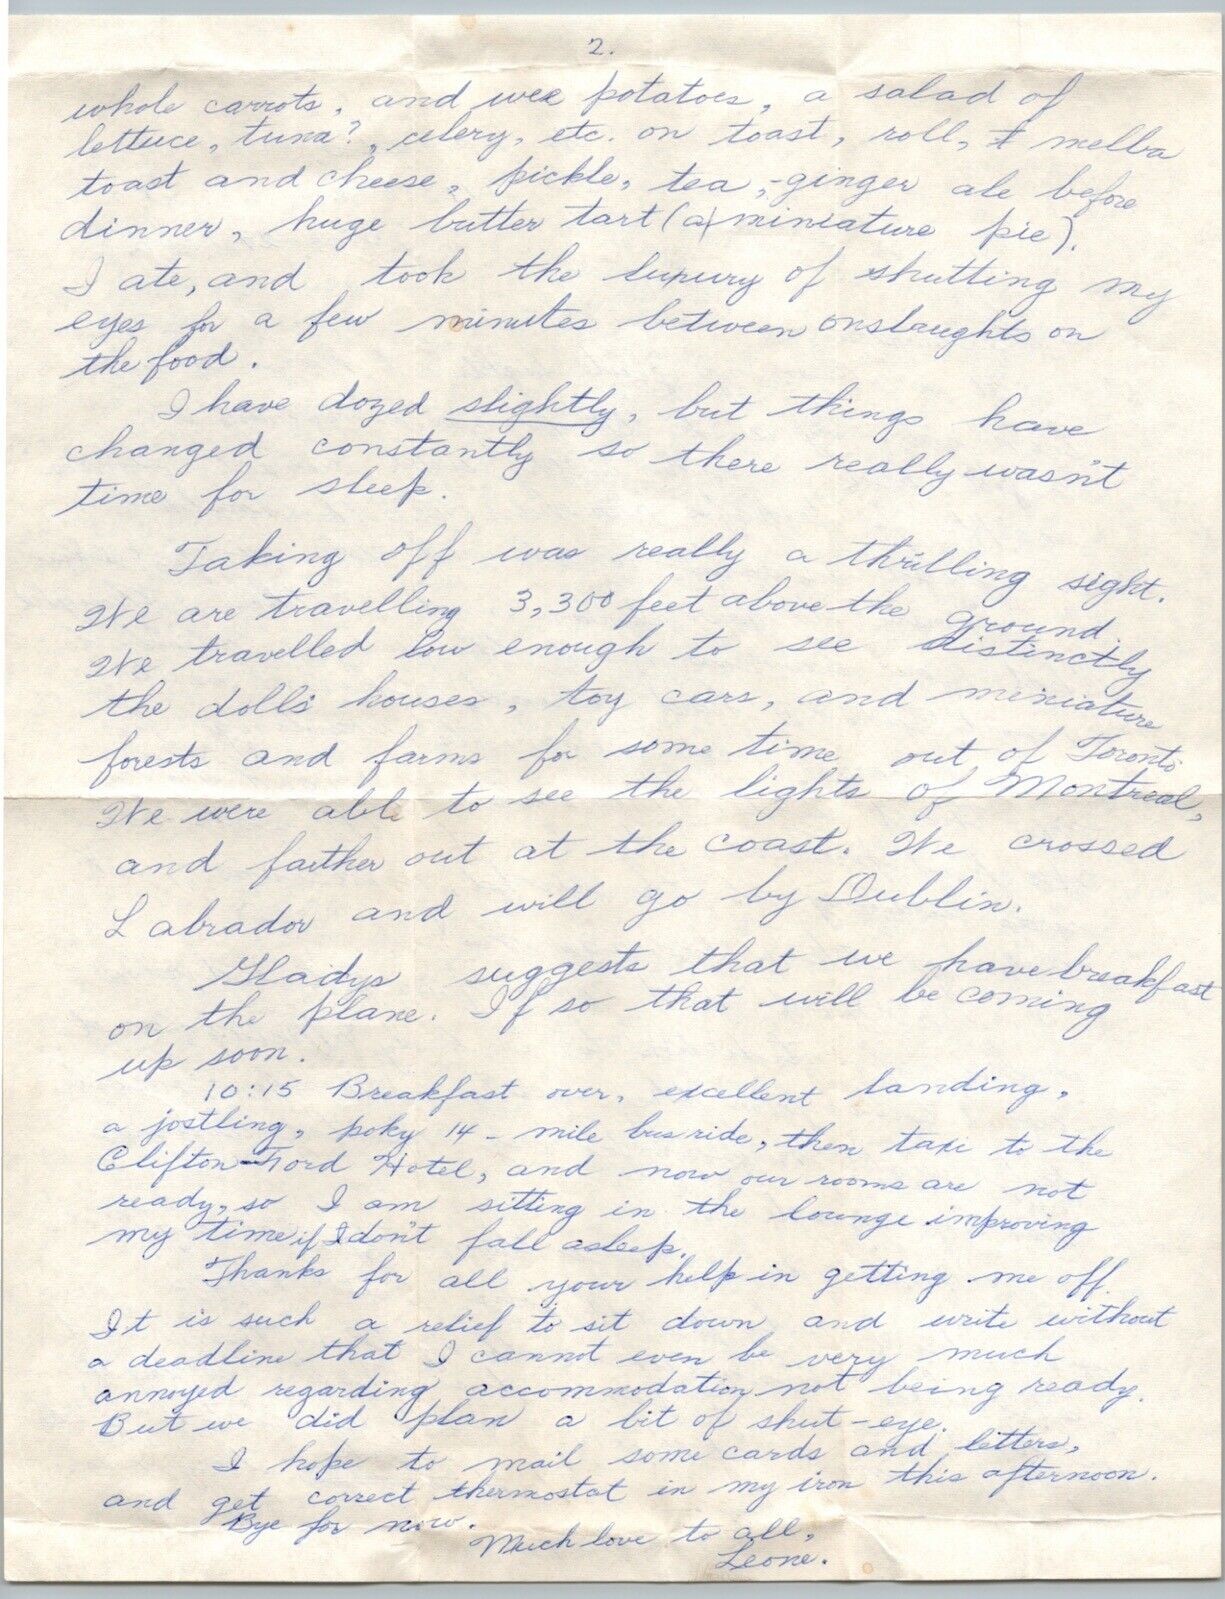 2.
whole carrots, and wee potatoes, a salad of
lettuce, tuna?, celery, etc. on toast, roll, melba
toast and cheese, pickle, tea, - ginger ale before
dinner, huge butter tart (a miniature pie).
I ate, and took the luxury of shutting my
eyes for a few minutes between onslaughts on
the food.
I have dozed slightly, but things have
changed constantly so there really wasn't
time for sleep.
Taking off was really a thrilling sight.
We are travelling 3,300 feet above the ground.
We travelled low enough to see distinctly
the doll's houses, toy cars, and miniature
forests and farms for some time out of Toronto
We were able to see the lights of Montreal,
and farther out at the coast. We crossed
Labrador and will go by Dublin.
Gladys suggests that we have breakfast
on the plane. If so that will be coming
up soon.
10:15 Breakfast over, excellent landing,
a jostling, poky 14-mile bus ride, then taxi to the
Clifton-Ford Hotel, and now our rooms are not
ready, so I am sitting in the lounge improving
my time if I don't fall asleep.
Thanks for all your help in getting me off.
It is such a relief to sit down and write without
a deadline that I cannot even be very much
annoyed regarding accommodation not being ready.
But we did plan a bit of shut-eye.
I hope to mail some cards and letters,
and get correct thermostat in my iron this afternoon.
Bye for now.
Much love to all,
Leone.